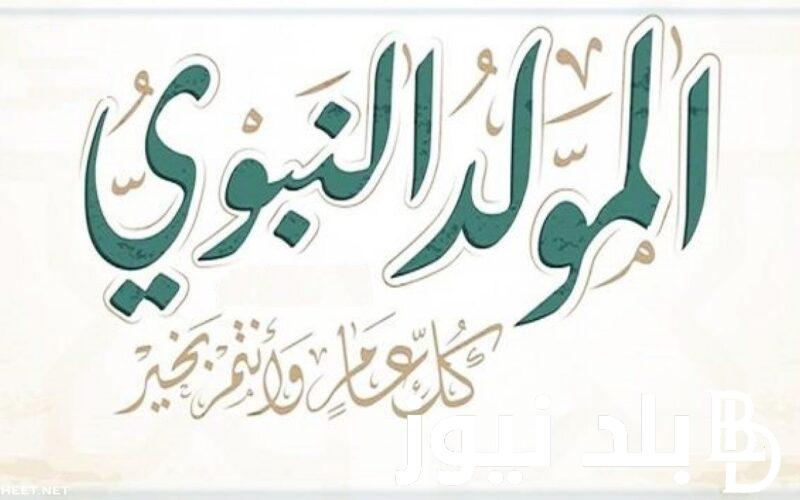 المولد النبوي
كل عام وأنتم بخير
بلد نيوز
BD
HEET.NET